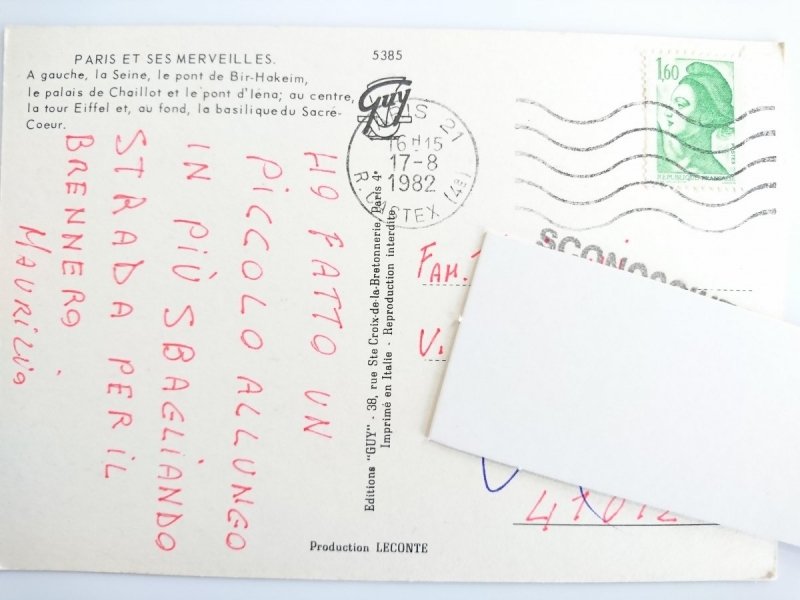 PARIS ET SES MERVEILLES.
A gauche, la Seine, le pont de Bir-Hakeim,
le palais de Chaillot et le pont d'Iéna; au centre,
la tour Eiffel et, au fond, la basilique du Sacré-
Coeur.
5385
Guy
PARIS 21
16H15
17-8
1982
R. CASTEX (4e)
1,60
POSTES
REPUBLIQUE FRANÇAISE
HO FATTO UN
PICCOLO ALLUNGO
IN PIÙ SBAGLIANDO
STRADA PER IL
BRENNERO
MAURIZIO
Editions "GUY" - 38, rue Ste Croix-de-la-Bretonnerie, Paris 4e
Imprimé en Italie - Reproduction interdite
FAM.
V.
Production LECONTE